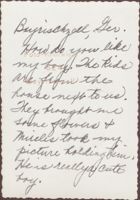 Bayrischzell Ger.
How do you like
my boy. The kids
are from the
house next to us.
They brought me
some flowers &
took my
picture holding him.
He is really a cute
boy.